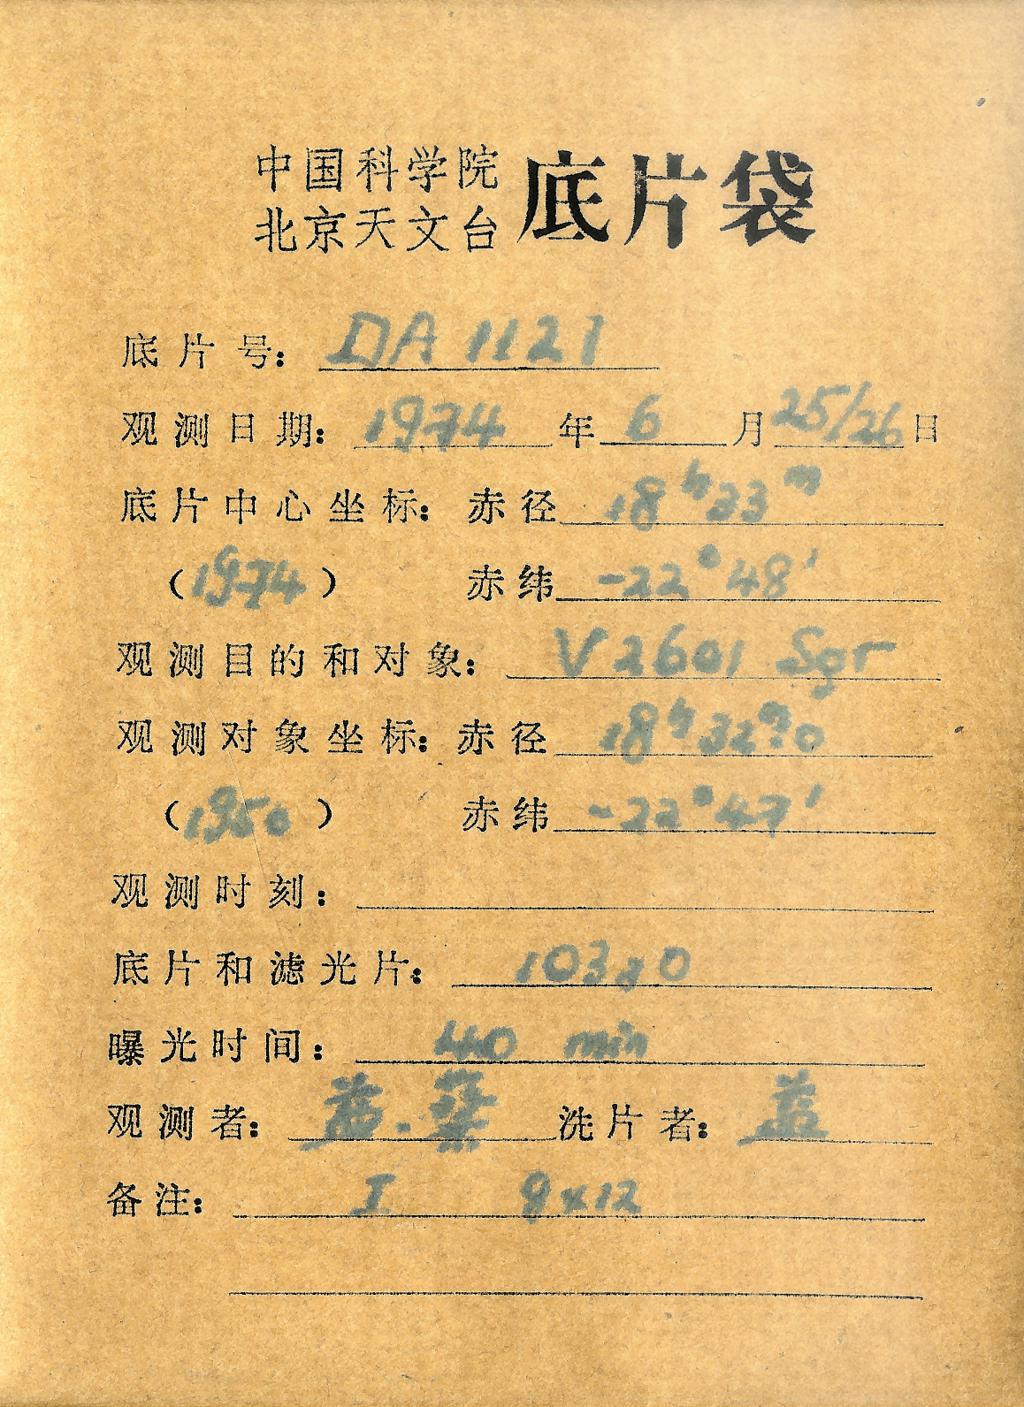 中国科学院
北京天文台 底片袋
底片号: DA 1121
观测日期: 1974 年 6 月 25/26 日
底片中心坐标: 赤径 18h33m
(1974) 赤纬 -22°48'
观测目的和对象: V2601 Sgr
观测对象坐标: 赤径 18h32m.0
(1950) 赤纬 -22°47'
观测时刻:
底片和滤光片: 103aO
曝光时间: 40 min
观测者: 洗片者:
备注: I 9x12